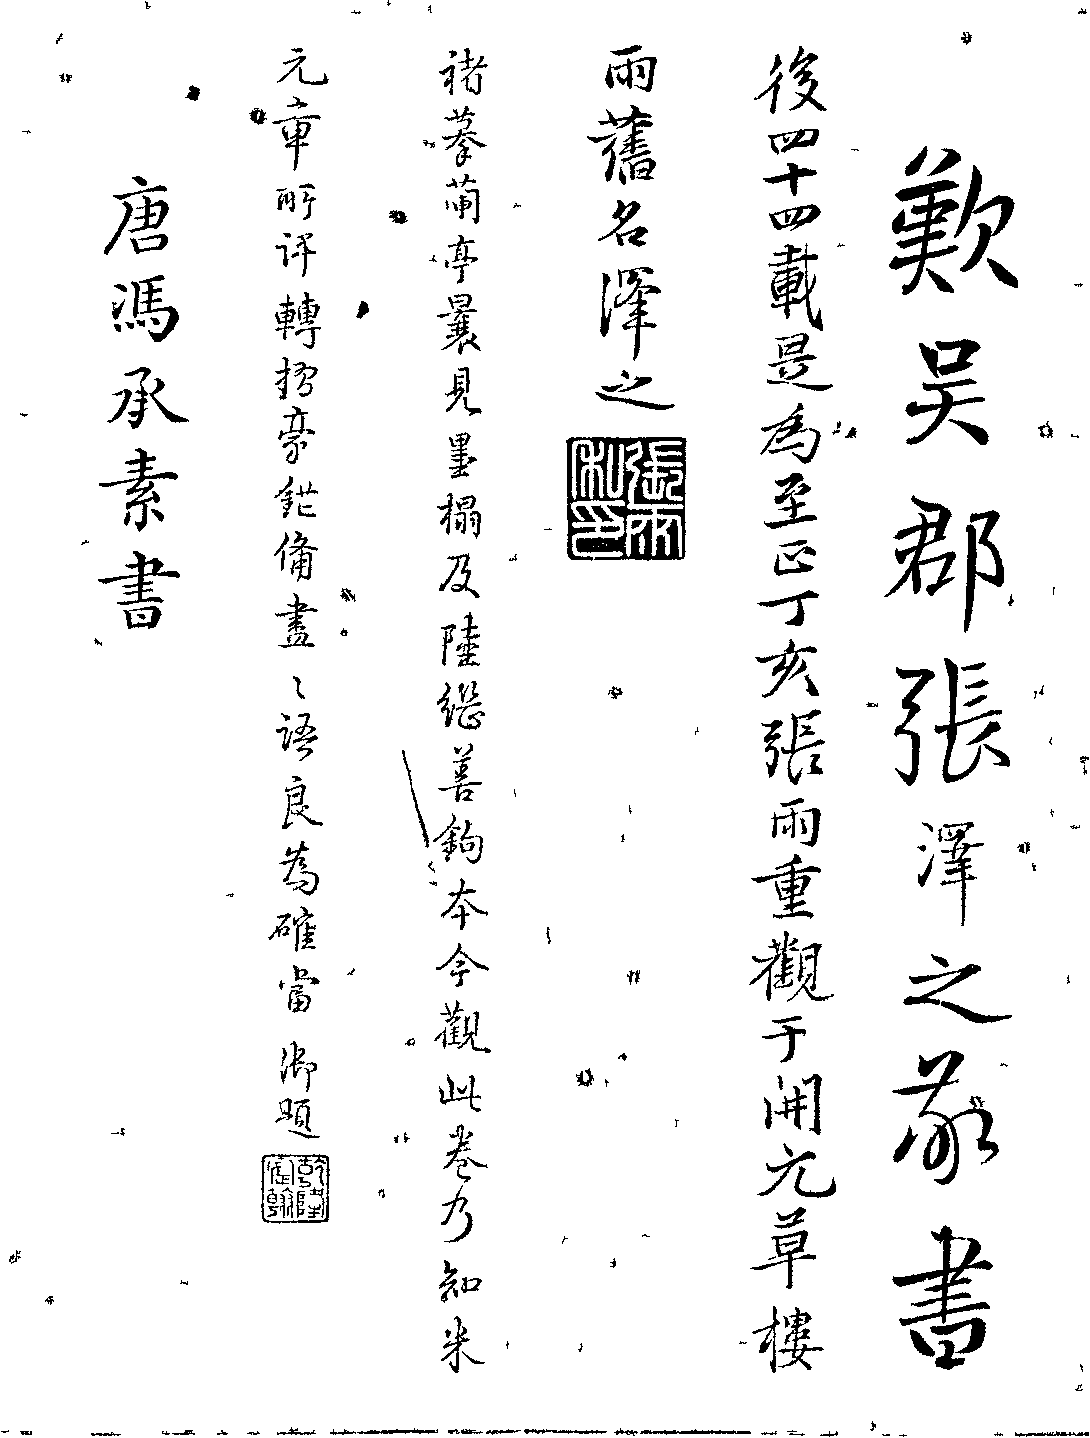 歎吳郡張澤之敬書
後四十四載是為至正丁亥張雨重觀于開元草樓
雨舊名澤之
張雨私印
褚摹蘭亭曩見墨榻及陸繼善鉤本今觀此卷乃知米
元章所評轉摺豪鋩備盡〻語良為確當 御題
乾隆宸翰
唐馮承素書